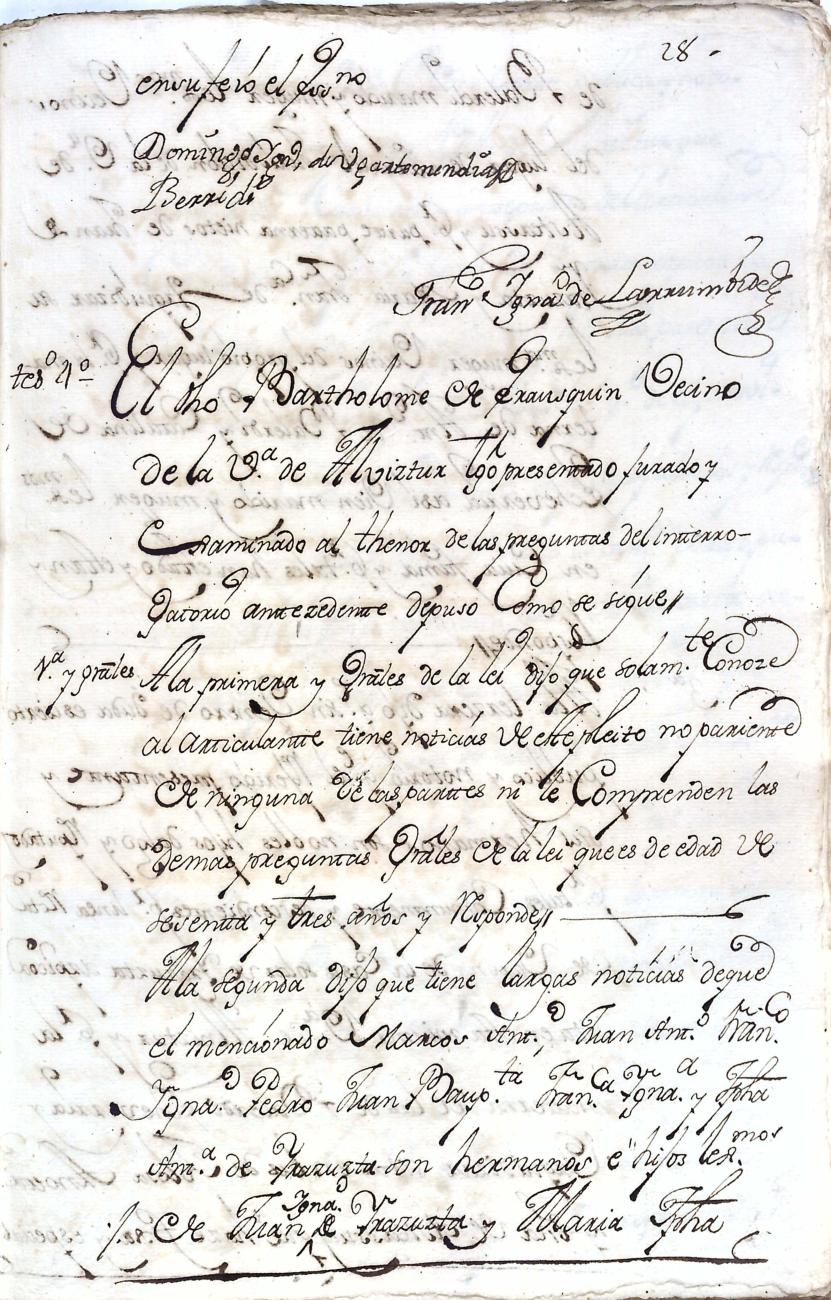 28 -
en su fe io el ssno
Domingo Ign.º de Vgartemendia
Berridi
Franco Ignaº de Larrumbide
tesº 4º El dho Bartholome de Yrausquin Vecino
de la Vª. de Alviztur tgo presentado jurado y
examinado al thenor de las preguntas del interro-
gatorio antezedente depuso Como se sigue//
1.ª y grãles A la primera y Grãles de la lei dijo que solam.te Conoze
al articulante tiene noticias de este pleito no pariente
de ninguna de las partes ni le Comprenden las
demas preguntas Grãles de la lei que es de edad de
sesenta y tres años y Rsponde//
A la segunda dijo que tiene largas noticias de que
el mencionado Marcos Ant.º, Juan Ant.º Fran.co
Ygna.º Pedro Juan Baup.ta Fran.ca Ygna.ª y Jpha
Ant.ª de Yrazuzta son hermanos e hijos lex.mos
./. de Juan Igna.º de Yrazuzta y Maria Jpha